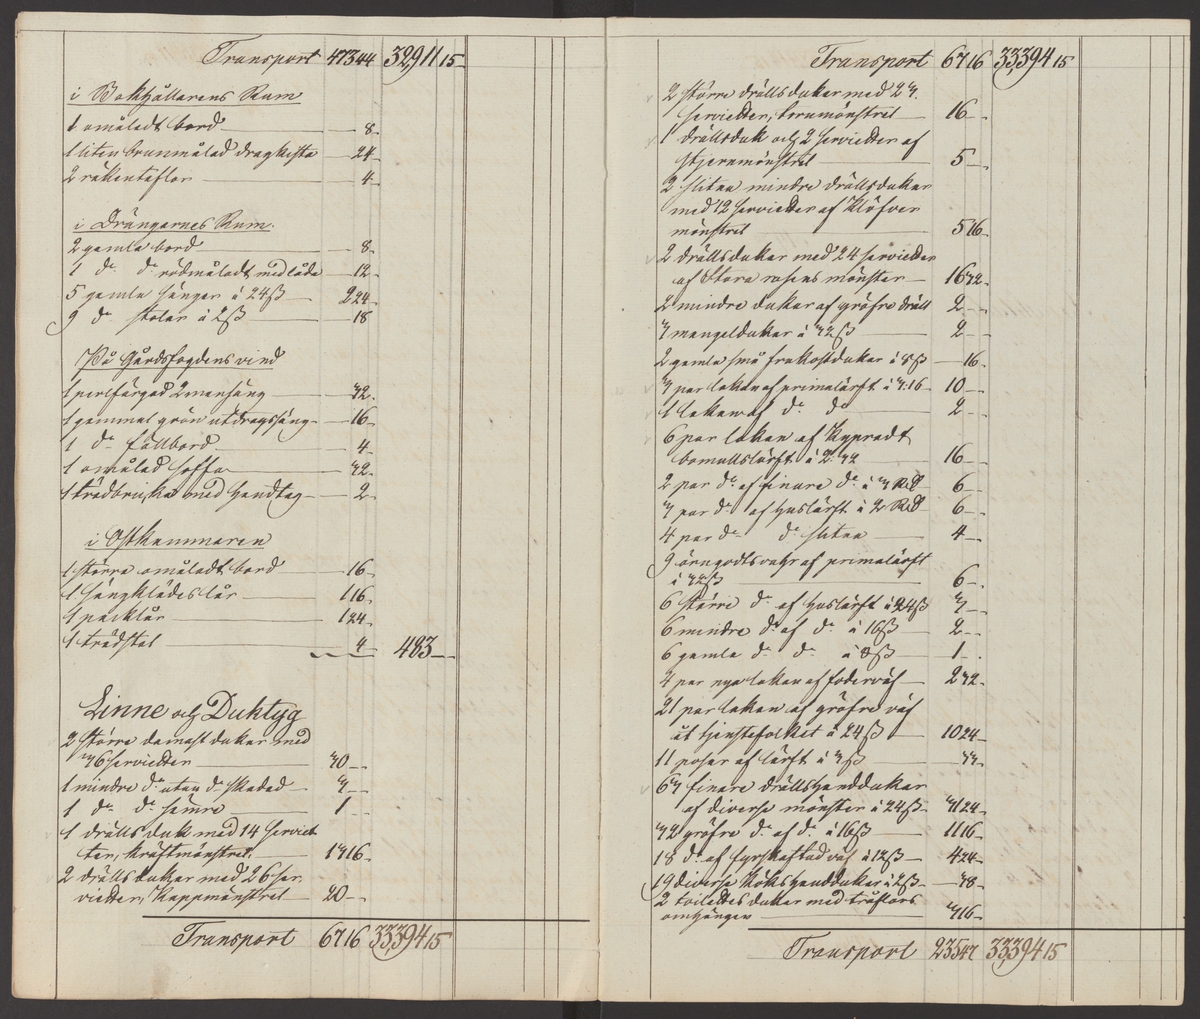 Transport 473 44 32,911 15
i Bokhållarens Rum
1 omåladt bord 8
1 liten brunmålad dragkista 24
2 räknetaflor 4
i Drängarnes Rum.
2 gamla bord 8
1 do do rödmåladt med låda 12
5 gamla sängar á 24ß 2 24
9 do stolar á 2ß 18
På Gårdsfogdens vind
1 perlfärgad 2mansäng 32
1 gammal grön utdragssäng 16
1 do fällbord 4
1 omålad soffa 32
1 trädbricka med handtag 2
i Ostkammaren
1 större omåladt bord 16
1 sängklädeslår 1 16
1 packlår 1 24
1 trädstol 4 483
Linne och Duktyg
2 större damast dukar med
36 servietter 30
1 mindre do utan do skadad 3
1 do do sämre 1
1 drälls duk med 14 serviet
ter, kräftmönstret 13 16
2 drälls dukar med 26 ser
vietter, Kappmönstret 20
Transport 67 16 33,394 15
Transport 67 16 33,394 15
2 större drällsdukar med 23.
servietter, 16
1 drällsduk och 2 servietter af
stjernmönstret 5
2 slitna mindre drällsdukar
med 12 servietter af Klöfver
mönstret 5 16
2 drällsdukar med 24 servietter
af Stora rosens mönster 16 32
2 mindre dukar af gröfre dräll 2
3 mangeldukar á 32ß 2
2 gamla små frukostdukar á 8ß 16
3 par lakan af primalärft á 3.16 10
1 lakan af do do 2
6 par lakan af Kypradt
bomullslärft á 2.32 16
2 par do af finare do á 3 RD 6
3 par do af huslärft á 2 RD 6
4 par do do slitna 4
9 örngodtsvahr af primalärft
á 32ß 6
6 större do af huslärft á 24ß 3
6 mindre do af do á 16ß 2
6 gamla do do á 8ß 1
2 par nya lakan af foderväf 2 32
21 par lakan af gröfre väf
åt tjenstefolket á 24ß 10 24
11 påsar af lärft á 3ß 33
63 finare drällshanddukar
af diverse mönster á 24ß 31 24
32 gröfre do af do á 16ß 11 16
18 do af fyrskaftad väf á 12ß 4 24
19 diverse Kökshanddukar á 2ß 38
2 toilettes dukar med träflors
omhängen 3 16
Transport 235 47 33,394 15